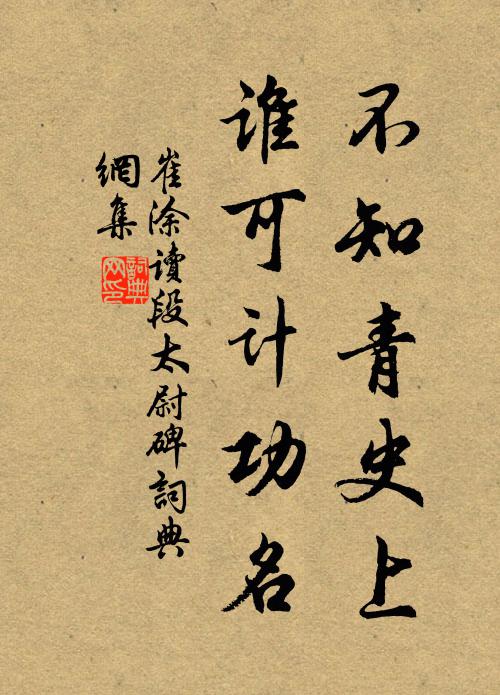 不知青史上
誰可計功名
崔涂讀段太尉碑詞典
網集
詞典
网印